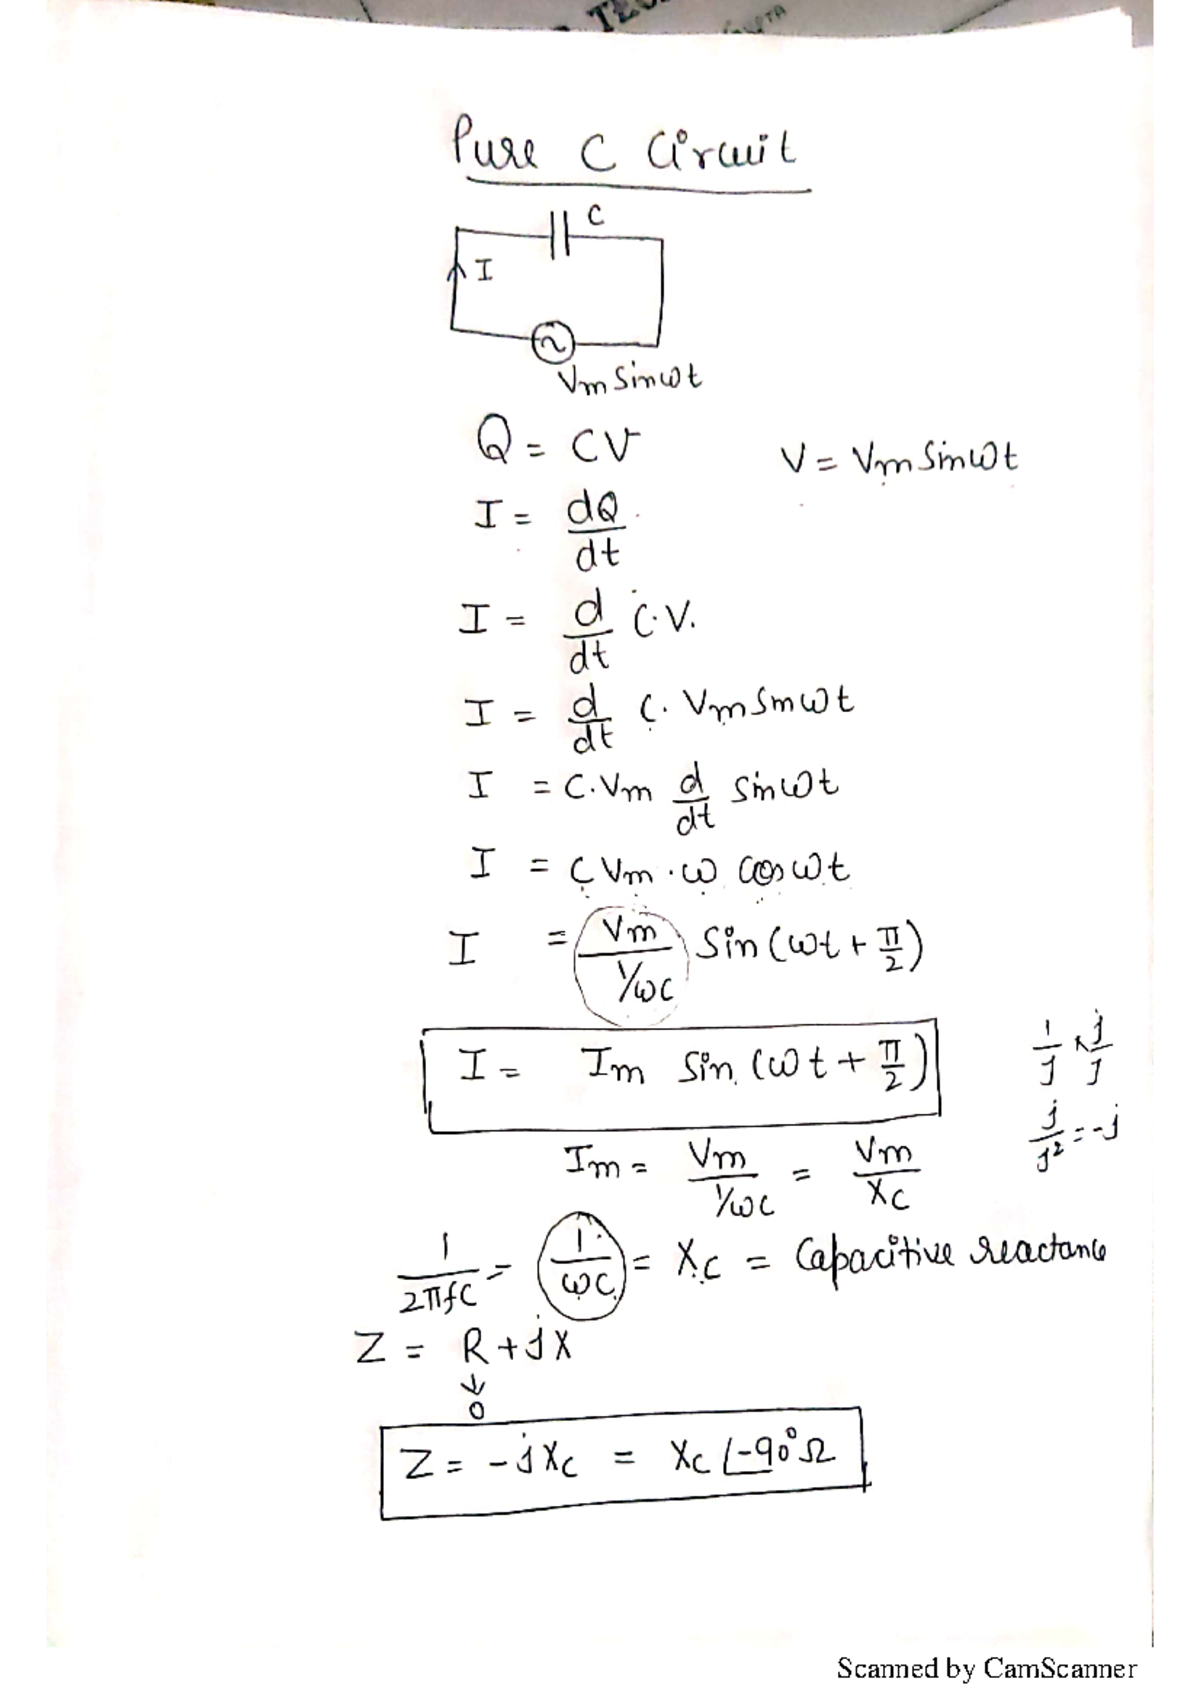 Pure C Circuit
C
I
Vm Sinωt
Q = CV
V = Vm Sinωt
I = dQ/dt
I = d/dt C.V.
I = d/dt C. Vm Sinωt
I = C.Vm d/dt sinωt
I = C Vm . ω cos ωt
I = Vm / 1/ωC Sin (ωt + π/2)
I = Im Sin (ωt + π/2)
1/j × j/j
j/j² = -j
Im = Vm / 1/ωC = Vm / XC
1/2πfC = 1/ωC = XC = Capacitive reactance
Z = R + jX
↓
0
Z = -jXC = XC ∠-90° Ω
Scanned by CamScanner